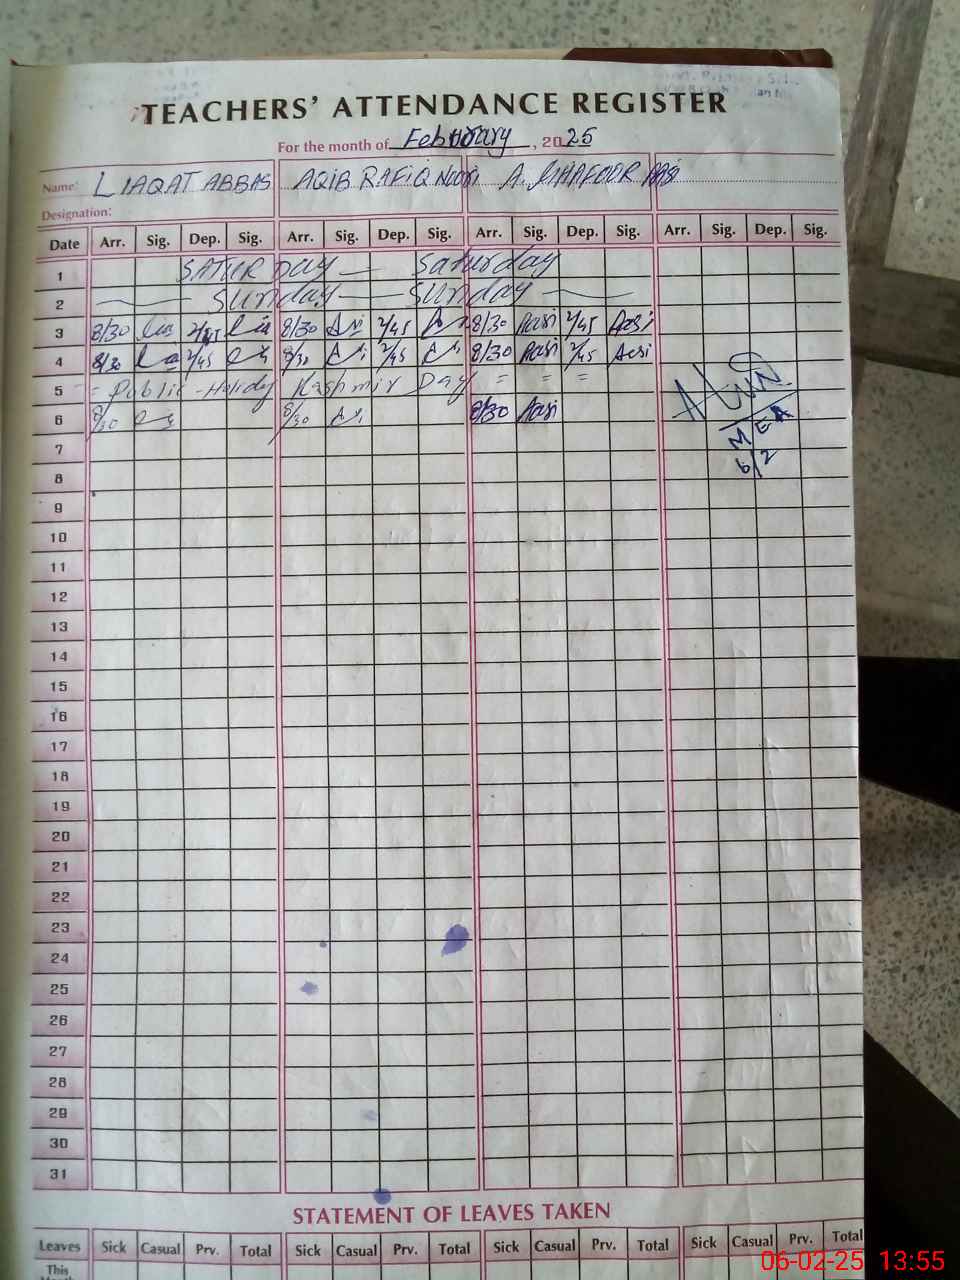 TEACHERS' ATTENDANCE REGISTER
For the month of February, 2025
Name: LIAQAT ABBAS AQIB RAFIQ NOORI A. GHAFOOR AASI
Designation:
Date Arr. Sig. Dep. Sig. Arr. Sig. Dep. Sig. Arr. Sig. Dep. Sig. Arr. Sig. Dep. Sig.
1 SATURDAY — Saturday
2 — Sunday — Sunday —
3 8/30 2/45 8/30 2/45 8/30 Aasi 2/45 Aasi
4 8/30 2/45 8/30 2/45 8/30 Aasi 2/45 Aasi
5 = Public - Holiday Kashmir Day = = =
6 8/30 8/30 8/30 Aasi
MEA
6/2
7
8
9
10
11
12
13
14
15
16
17
18
19
20
21
22
23
24
25
26
27
28
29
30
31
STATEMENT OF LEAVES TAKEN
Leaves Sick Casual Prv. Total Sick Casual Prv. Total Sick Casual Prv. Total Sick Casual Prv. Total
This
06-02-25 13:55